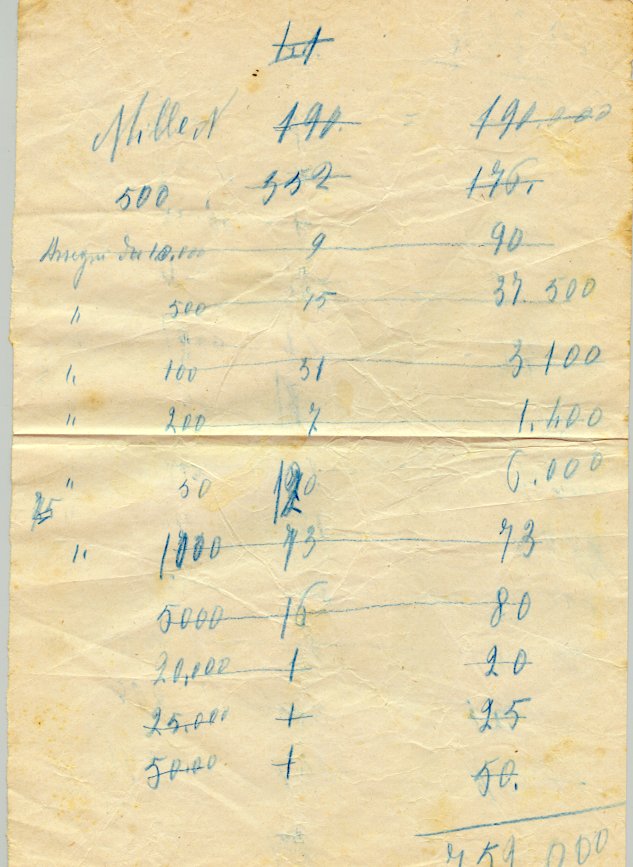 Mille N 190. = 190.000
500 " 352 176.
Assegni da 10.000 9 90
" 500 75 37.500
" 100 31 3.100
" 200 7 1.400
" 50 120 6.000
75
" 1000 73 73
5000 16 80
20,000 1 20
25.000 1 25
50.00 1 50.
759.000